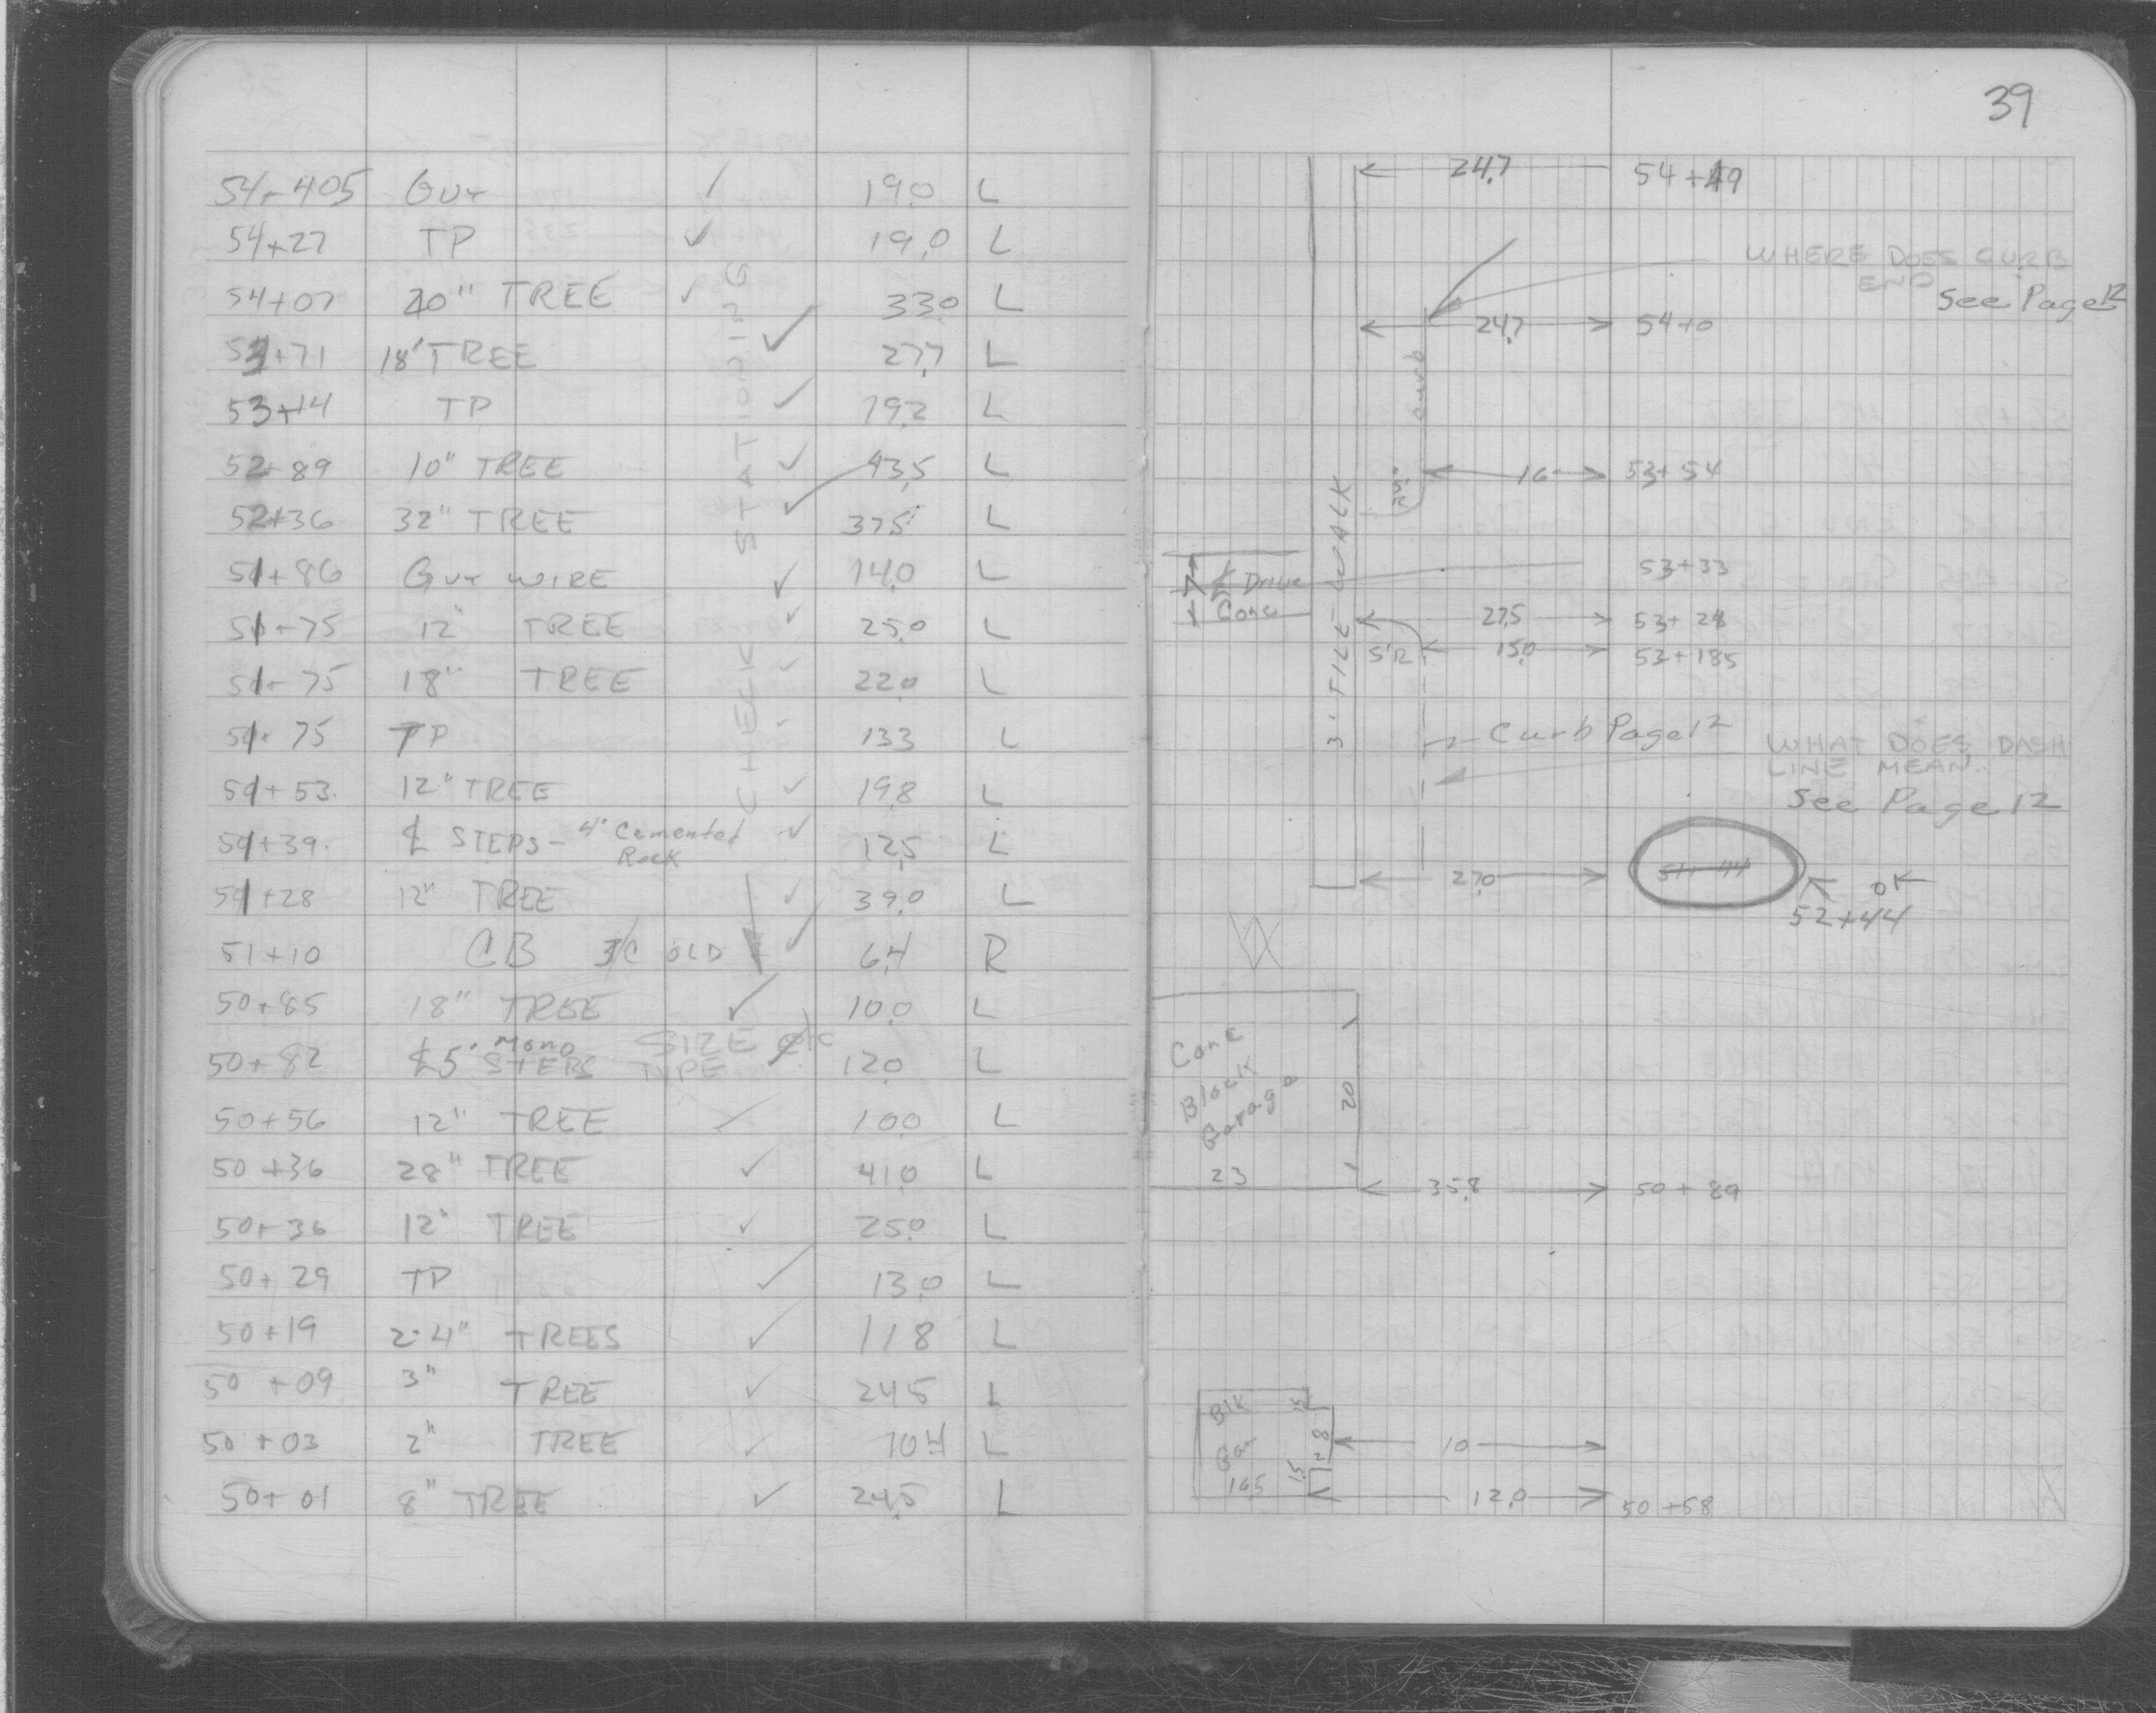 39
54+405 GUY ✓ 19.0 L
54+27 TP ✓ 19.0 L
54+07 20" TREE ✓ 33.0 L
53+71 18" TREE ✓ 27.7 L
53+14 TP ✓ 19.2 L
52+89 10" TREE ✓ 43.5 L
52+36 32" TREE ✓ 37.5 L
51+86 GUY WIRE ✓ 14.0 L
51+75 12" TREE ✓ 25.0 L
51+75 18" TREE ✓ 22.0 L
51+75 TP ✓ 133 L
51+53 12" TREE ✓ 19.8 L
51+39 ℄ STEPS - 4' Cemented Rock ✓ 12.5 L
51+28 12" TREE ✓ 39.0 L
51+10 CB OLD ✓ 6.4 R
50+85 18" TREE ✓ 10.0 L
50+82 ℄ 5' Mono STEPS SIZE TYPE 12.0 L
50+56 12" TREE ✓ 10.0 L
50+36 28" TREE ✓ 41.0 L
50+36 12" TREE ✓ 25.0 L
50+29 TP ✓ 13.0 L
50+19 2-4" TREES ✓ 11.8 L
50+09 3" TREE ✓ 24.5 L
50+03 2" TREE ✓ 10.4 L
50+01 8" TREE ✓ 24.5 L
CHECK STATIONING
24.7 54+49
WHERE DOES CURB
END
See Page 12
24.7 54+0
curb
16 53+54
3' TILE WALK
53+33
17 ℄ Drive
Conc
27.5 53+28
5'R 15.0 53+185
Curb Page 12
WHAT DOES DASH
LINE MEAN.
See Page 12
27.0 51+44
OK
52+44
Conc
Block
Garage
20
23
35.8 50+89
Blk
Gar
16.5
1.5
8
1.5
10
12.0 50+58